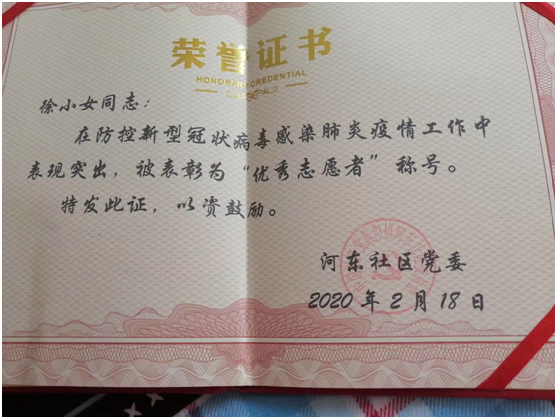 荣誉证书
HONORARY CREDENTIAL
徐小女同志：
在防控新型冠状病毒感染肺炎疫情工作中
表现突出，被表彰为“优秀志愿者”称号。
特发此证，以资鼓励。
河东社区党委
2020年2月18日